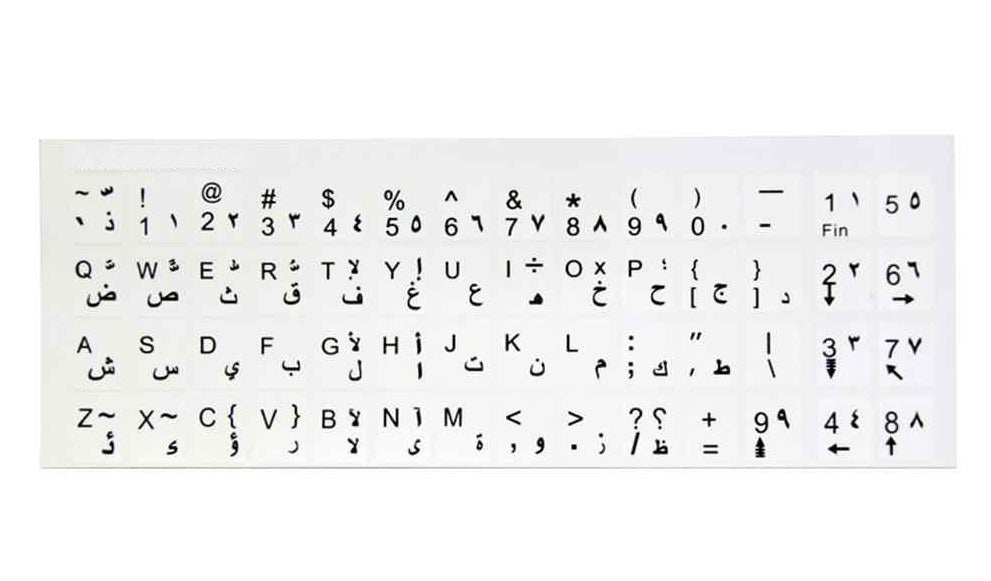 ~ ّ ! @ # $ % ^ & * ( ) —
` ذ 1 ١ 2 ٢ 3 ٣ 4 ٤ 5 ٥ 6 ٦ 7 ٧ 8 ٨ 9 ٩ 0 ٠ - 1 ١ 5 ٥
Fin
Q َ W ً E ُ R ٌ T لإ Y إ U I ÷ O x P ؛ { } 2 ٢ 6 ٦
ض ص ث ق ف غ ع ه خ ح [ ج ] د ↓ →
A S D F G لأ H أ J K L : " | 3 ٣ 7 ٧
ش س ي ب ل ا ت ن م ; ك ' ط \ ↓ ↖
Z ~ X ~ C { V } B لآ N آ M < > ? ؟ + 9 ٩ 4 ٤ 8 ٨
ئ ء ؤ ر لا ى ة , و . ز / ظ = ↑ ← ↑